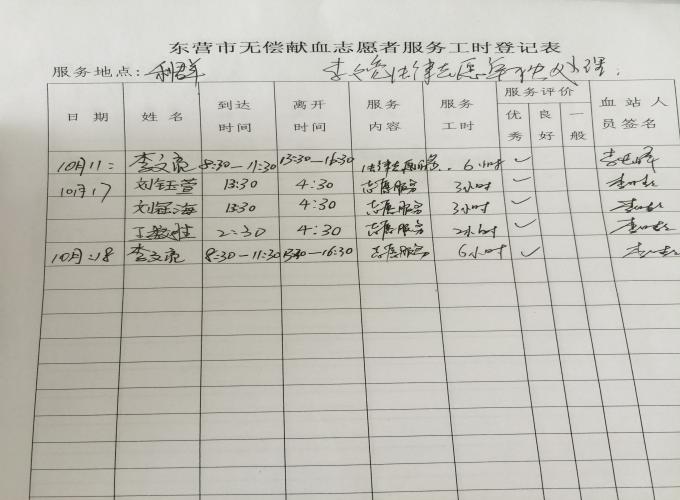 东营市无偿献血志愿者服务工时登记表
服务地点：利群
日期 姓名 到达时间 离开时间 服务内容 服务工时 服务评价 优秀 良好 一般 血站人员签名
10月11: 李文亮 8:30-11:30 13:30-16:30 法律志愿服务 6小时 ✓
10月17 刘钰萱 13:30 4:30 志愿服务 3小时 ✓
海 13:30 4:30 志愿服务 3小时 ✓
丁 2:30 4:30 志愿服务 2小时 ✓
10月:18 李文亮 8:30-11:30 13:30-16:30 志愿服务 6小时 ✓